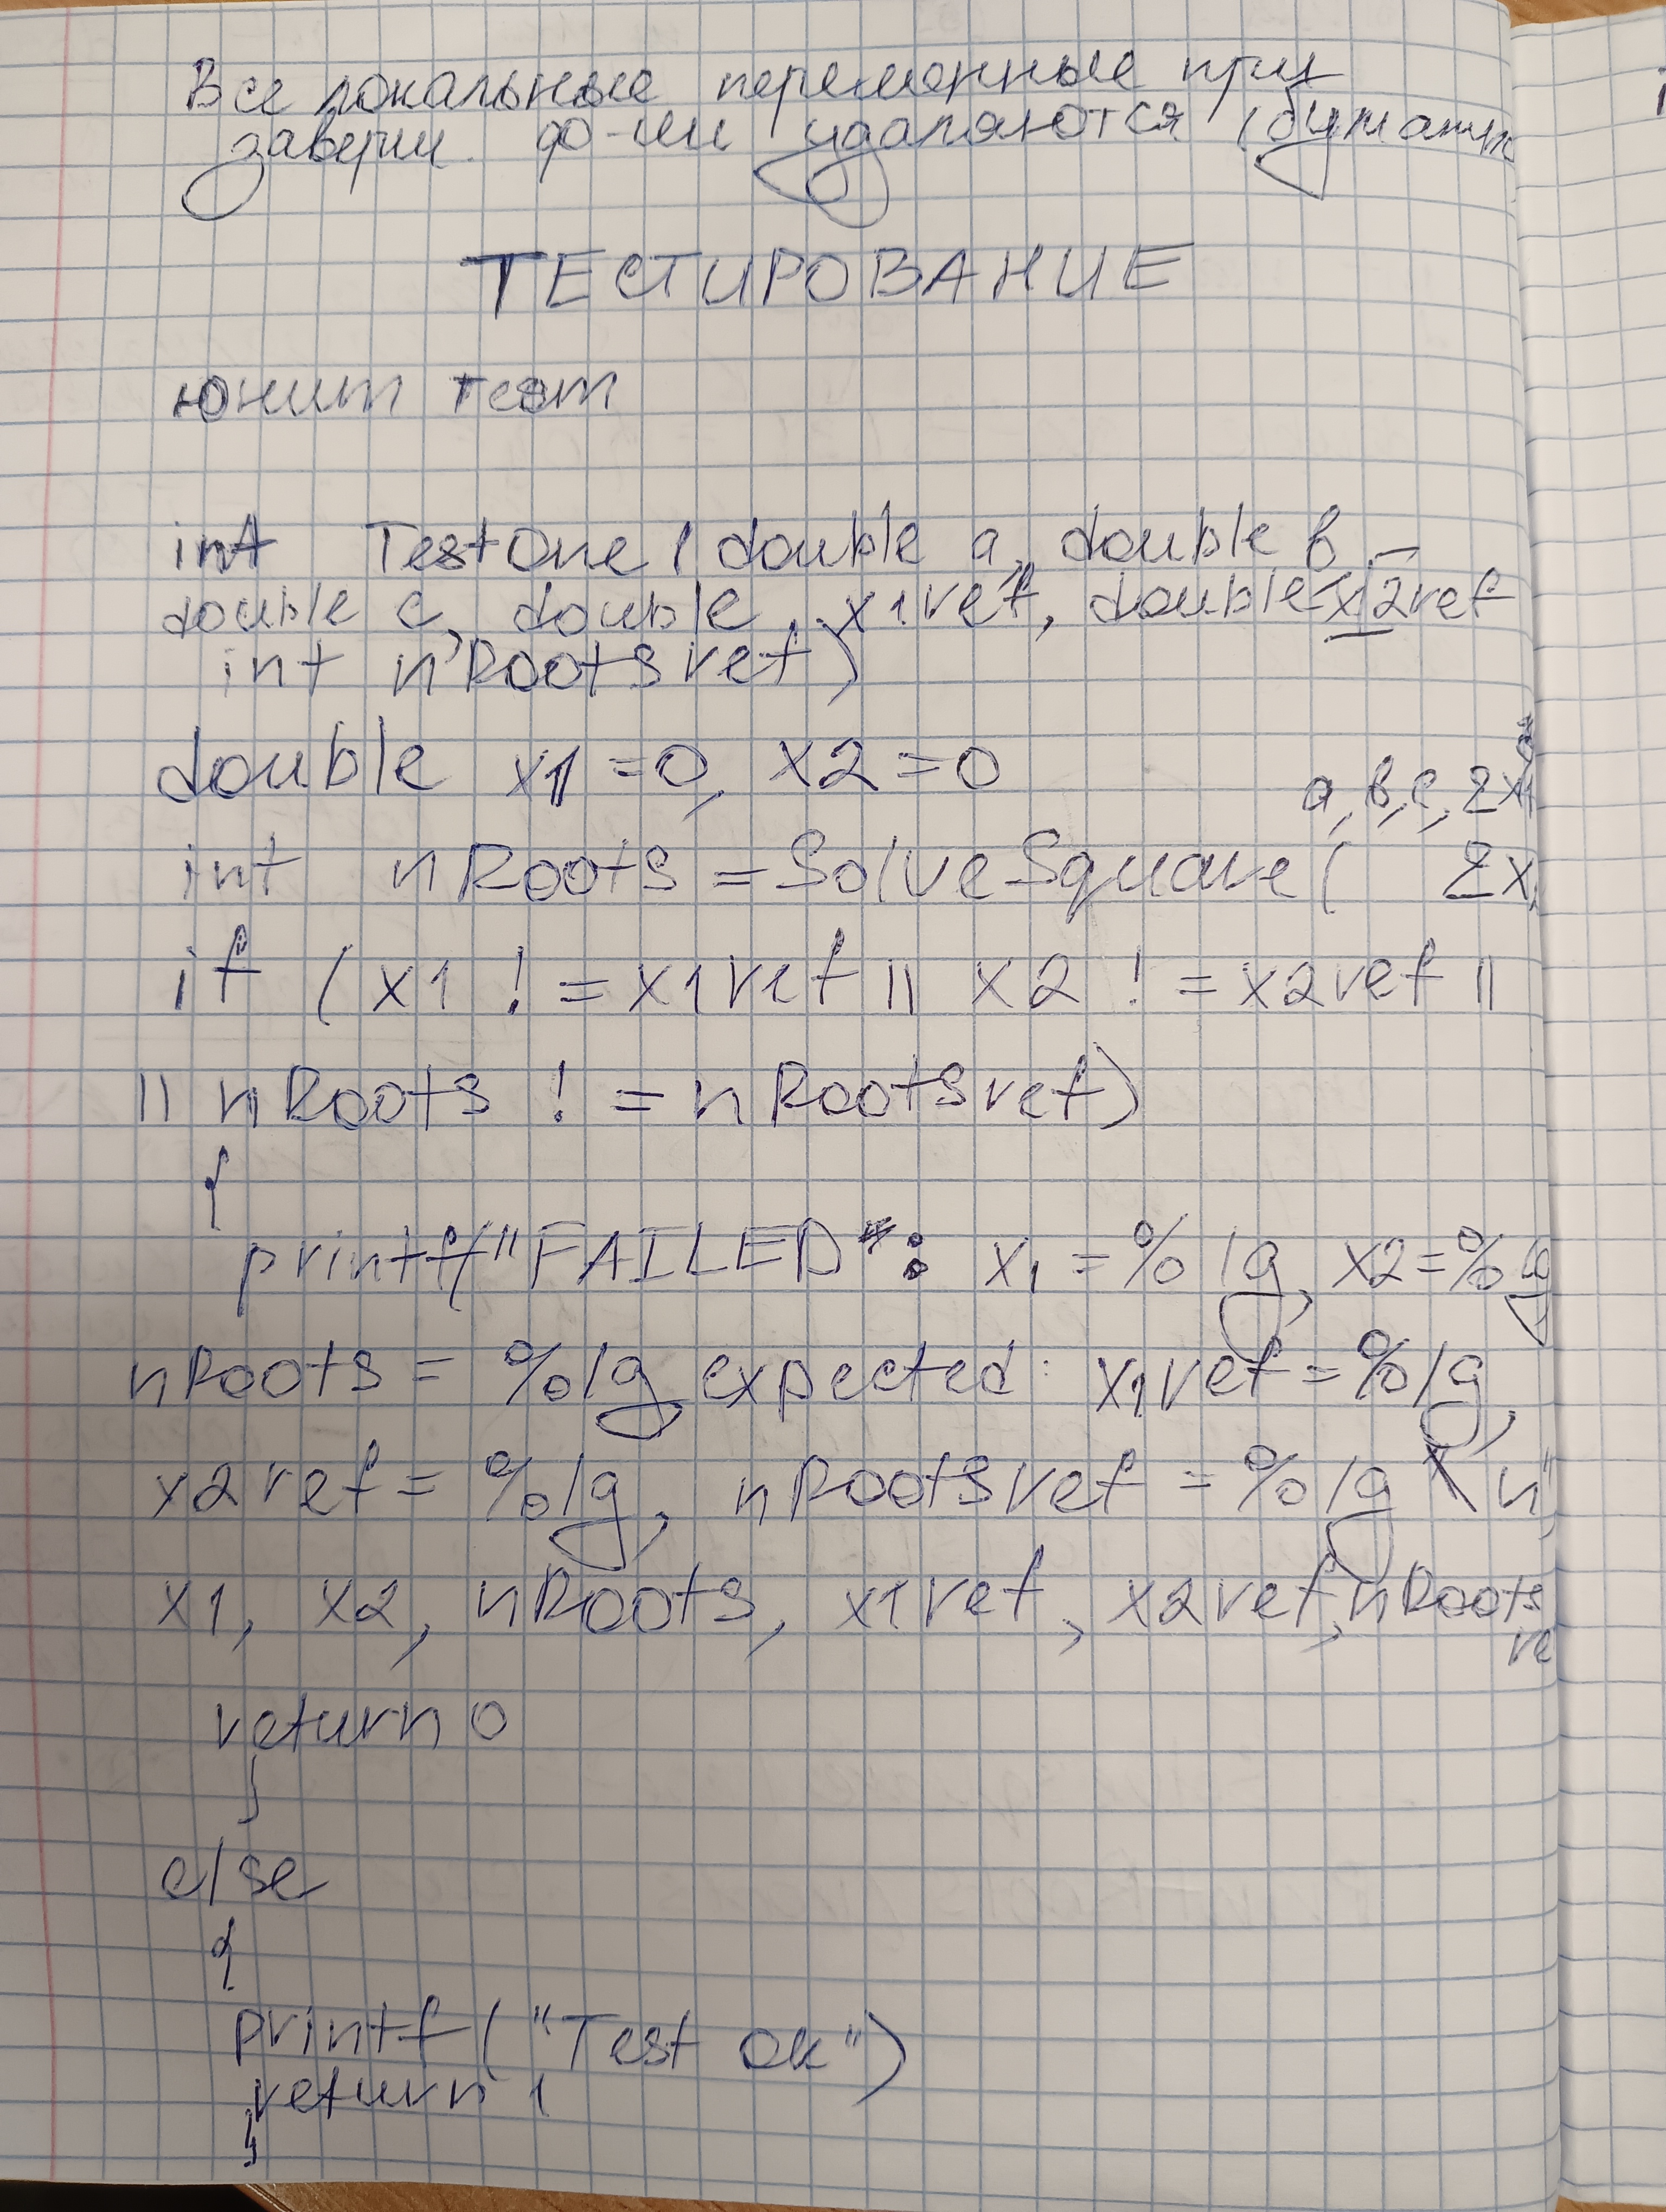 Все локальные переменные при
заверш. ф-ции удаляются (бумажк
ТЕСТИРОВАНИЕ
юнит тест
int TestOne ( double a, double b,
double c, double x1ref, double x2ref
int nRootsref)
double x1 = 0, x2 = 0
a, b, c, &x1
int nRoots = SolveSquare ( &x
if ( x1 != x1ref || x2 != x2ref ||
|| nRoots != nRootsref)
{
printf("FAILED": x1 = %lg, x2 = %lg
nRoots = %lg expected: x1ref = %lg,
x2ref = %lg, nRootsref = %lg \n",
x1, x2, nRoots, x1ref, x2ref, nRoots
re
return 0
}
else
{
printf ("Test ok")
return 1
}